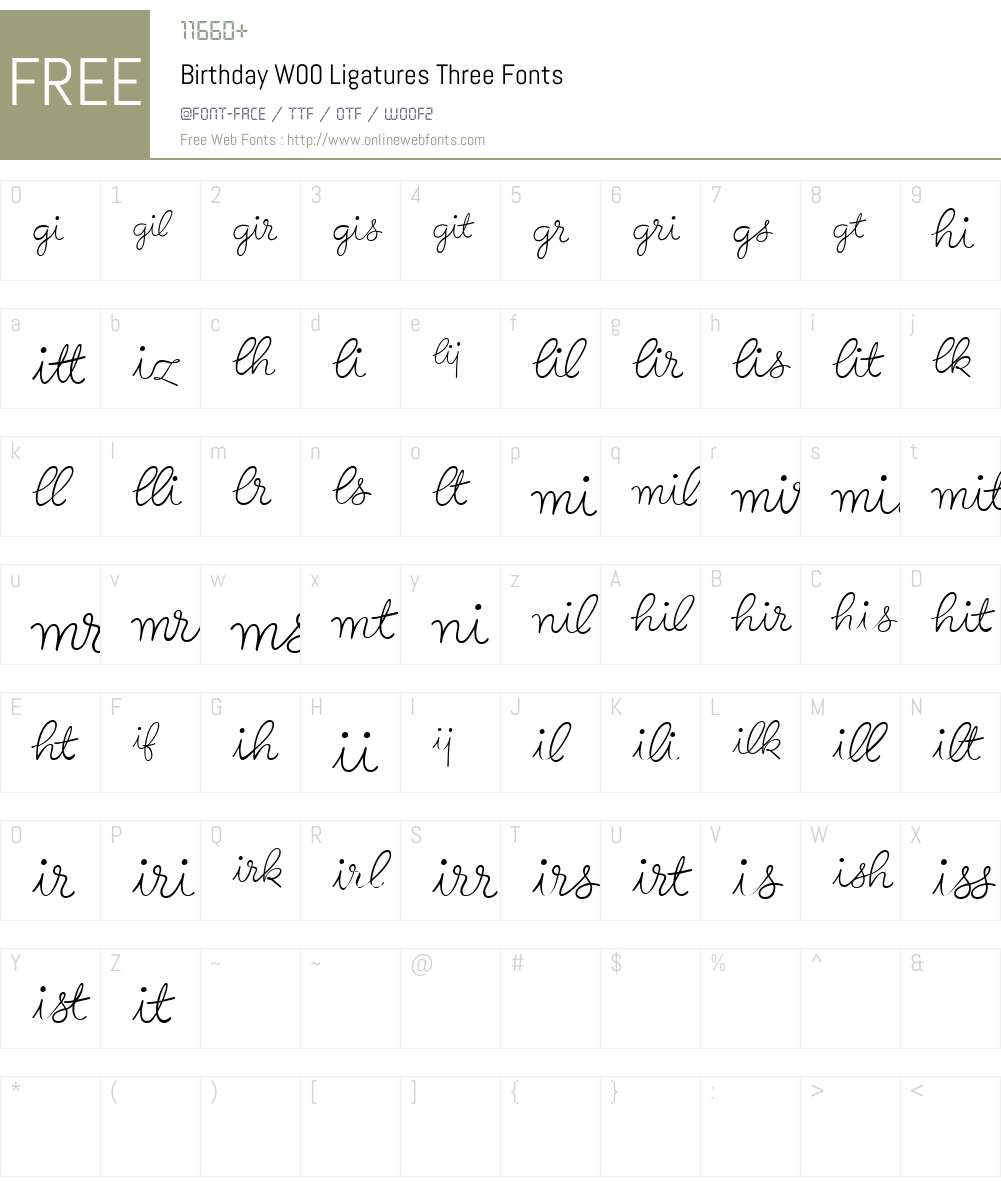 FREE
11660+
Birthday W00 Ligatures Three Fonts
@FONT-FACE / TTF / OTF / WOOF2
Free Web Fonts : http://www.onlinewebfonts.com
0 1 2 3 4 5 6 7 8 9
gi gil gir gis git gr gri gs gt hi
a b c d e f g h i j
itt iz lh li lij lil lir lis lit lk
k l m n o p q r s t
ll lli lr ls lt mi mil mir mis mit
u v w x y z A B C D
mr mr ms mt ni nil hil hir his hit
E F G H I J K L M N
ht if ih ii ij il ili ilk ill ilt
O P Q R S T U V W X
ir iri irk irl irr irs irt is ish iss
Y Z ~ ~ @ # $ % ^ &
ist it
* ( ) [ ] { } : > <